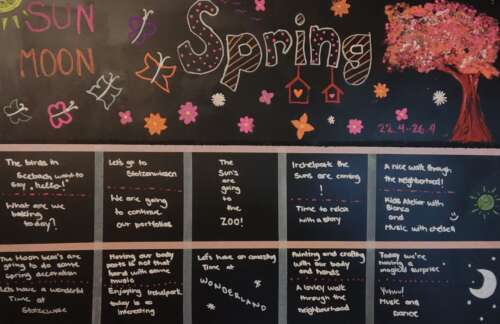 SUN
MOON
Spring
22.4-26.4
The birds in
Seebach want to
say „hello!"
What are we
baking
today?
Let's go to
Stolzewiesen
We are going
to continue
our portfolios
The
Sun's
are
going
to
the
ZOO!
Irchelpark the
Suns are coming
!
Time to relax
with a story
A nice walk through
the neighborhood!
Kids Atelier with
Bianca
and
Music with chelsea
The Moon bear's are
going to do some
spring decoration
Let's have a wonderful
Time at
Stolzewise
Moving our body
parts is not that
hard with some
music
Enjoying Irchelpark
today is so
interesting
Let's have an amazing
Time at
WONDERLAND
Painting and crafting
with our body
and hands
A lovley walk
through the
neighbourhood
Today we're
having a
magical surprise
Yuhuu!
Music and
Dance